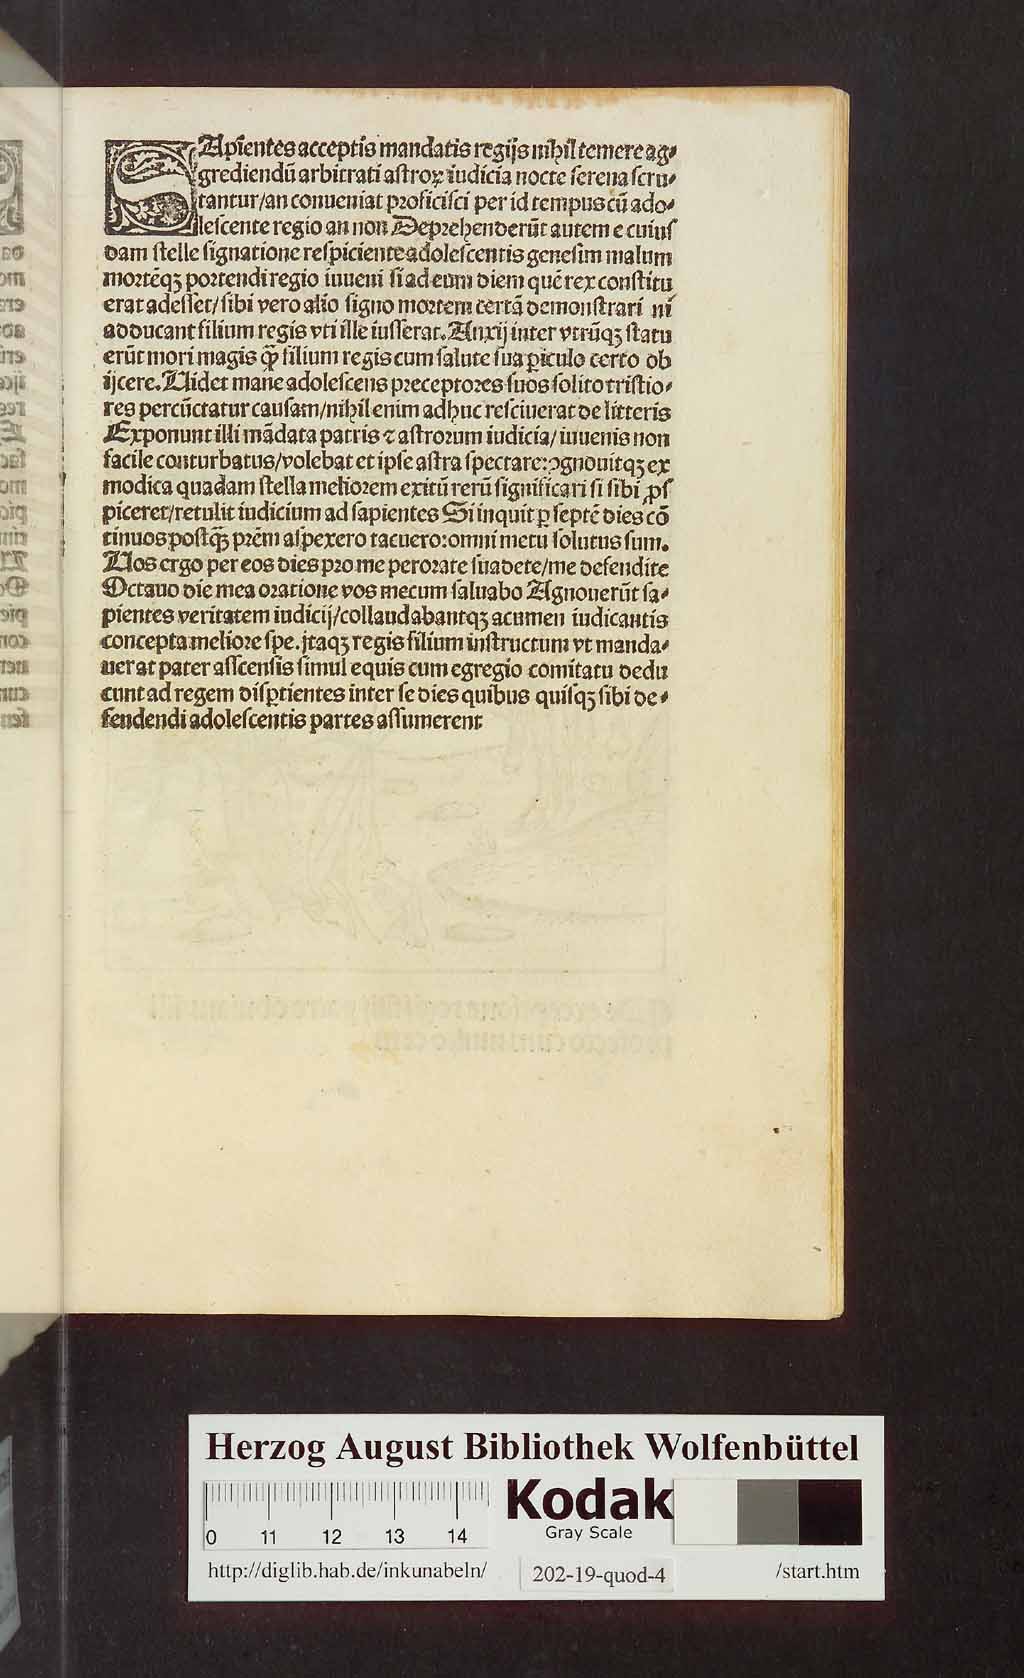 SApiẽntes acceptis mandatis regijs nihil temere ag⸗
grediendũ arbitrati astroꝝ iudicia nocte serena scru⸗
tantur/an conueniat proficisci per id tempus cũ ado⸗
lescente regio an non Deprehenderũt autem e cuius
dam stelle signatione respiciente adolescentis genesim malum
mortẽqꝫ portendi regio iuueni si ad eum diem quẽ rex constitu
erat adesset/sibi vero alio signo mortem certã demonstrari ni
adducant filium regis vti ille iusserat. Anxij inter vtrũqꝫ statu
erũt mori magis q̃ȝ filium regis cum salute sua ꝑiculo certo ob
ijcere. Uidet mane adolescens preceptores suos solito tristio⸗
res percũctatur causam/nihil enim adhuc resciuerat de litteris
Exponunt illi mãdata patris ⁊ astrorum iudicia/iuuenis non
facile conturbatus/volebat et ipse astra spectare:ꝯgnouitqꝫ ex
modica quadam stella meliorem exitũ rerũ significari si sibi ꝓs
piceret/retulit iudicium ad sapientes Si inquit ꝑ septẽ dies cõ
tinuos postq̃ȝ prẽm aspexero tacuero:omni metu solutus sum.
Uos ergo per eos dies pro me perorate suadete/me defendite
Octauo die mea oratione vos mecum saluabo Agnouerũt sa⸗
pientes veritatem iudicij/collaudabantqꝫ acumen iudicantis
concepta meliore spe. jtaqꝫ regis filium instructum vt manda⸗
uerat pater asscensis simul equis cum egregio comitatu dedu
cunt ad regem disꝑtientes inter se dies quibus quisqꝫ sibi de⸗
fendendi adolescentis partes assumerent
Herzog August Bibliothek Wolfenbüttel
Kodak
Gray Scale
0 11 12 13 14
http://diglib.hab.de/inkunabeln/ 202-19-quod-4 /start.htm